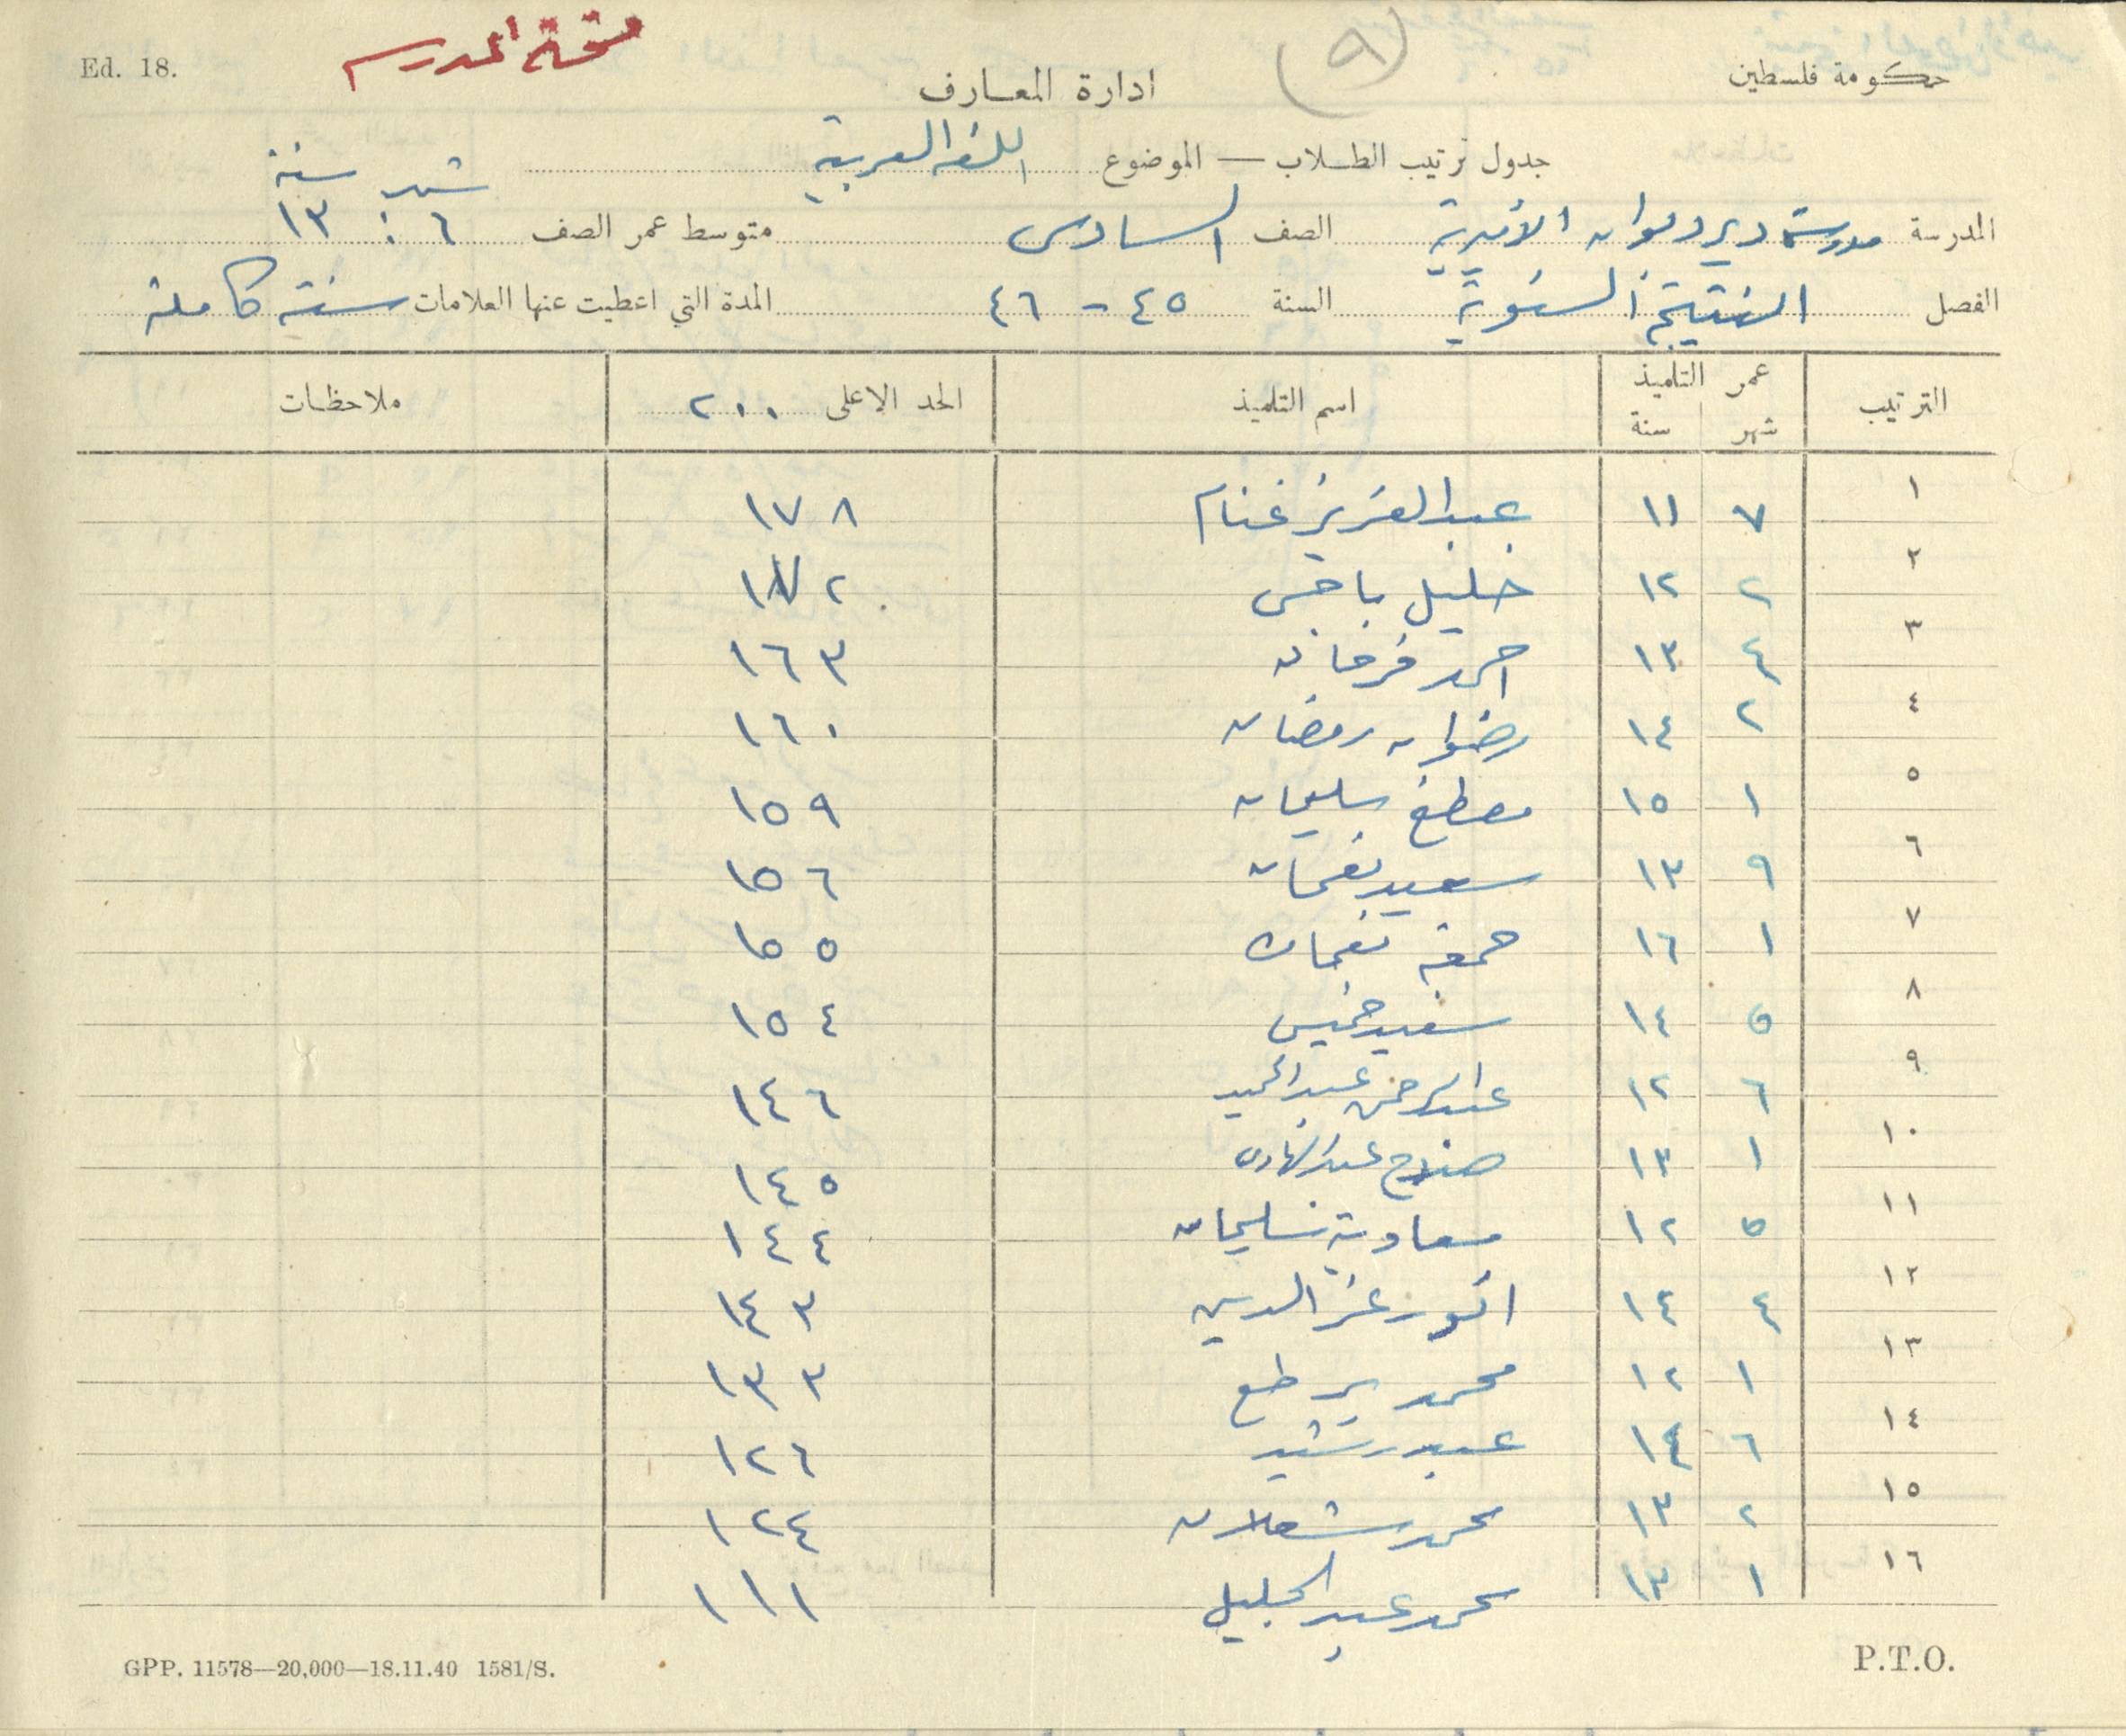 Ed. 18.
نسخة المدرسة
(٩)
حكومة فلسطين
ادارة المعارف
جدول ترتيب الطلاب — الموضوع اللغة العربية
المدرسة مدرسة دير دبوان الأميرية الصف السادس متوسط عمر الصف شهر ٦ : سنة ١٣
الفصل النتيجة السنوية السنة ٤٥ - ٤٦ المدة التي اعطيت عنها العلامات سنة كاملة
الترتيب عمر التلميذ شهر سنة اسم التلميذ الحد الاعلى ٢٠٠ ملاحظات
١ ٧ ١١ عبد العزيز غنام ١٧٨
٢ ٢ ١٢ خليل باجس ١٧٢
٣ ٤ ١٣ احمد فرحان ١٦٣
٤ ٢ ١٤ رضوان رمضان ١٦٠
٥ ١ ١٥ مصطفى سليمان ١٥٩
٦ ٩ ١٣ سعيد نعمان ١٥٦
٧ ١ ١٦ جمعة نعمان ١٥٥
٨ ٥ ١٤ سعيد خميس ١٥٤
٩ ٦ ١٢ عبد الرحمن عبد الحميد ١٤٦
١٠ ١ ١٣ صلاح عبد الهادي ١٤٥
١١ ٥ ١٢ معاوية سليمان ١٤٤
١٢ ٤ ١٤ انور عز الدين ١٤٣
١٣ ١ ١٢ محمد ١٣٣
١٤ ٦ ١٤ عبد رشيد ١٢٦
١٥ ٢ ١٣ محمد شعلان ١٢٤
١٦ ١ ١٣ محمد عبد الجليل ١١١
GPP. 11578—20,000—18.11.40 1581/S.
P.T.O.